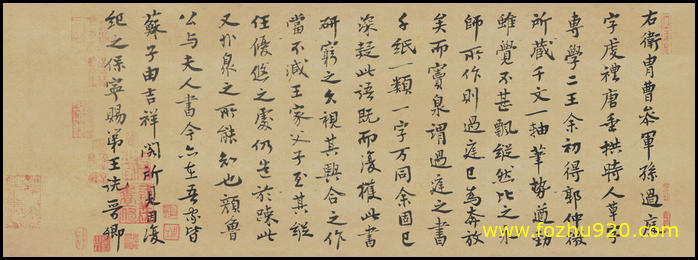 右衛冑曹參軍孫過庭
字虔禮唐垂拱時人草書
專學二王余初得郭仲微
所藏千文一軸筆勢遒勁
雖覺不甚飄縱然比之永
師所作則過庭已為奔放
矣而竇臮謂過庭之書
千紙一類一字万同余固已
深疑此語既而復獲此書
研窮之久視其興合之作
當不減王家父子至其縱
任優游之處仍造於疎此
又非臮之所能知也顏魯
公与夫人書今亦在吾家皆
蘇子由吉祥閣所見因復
紀之保寧賜第王詵晉卿
www.fozhu920.com